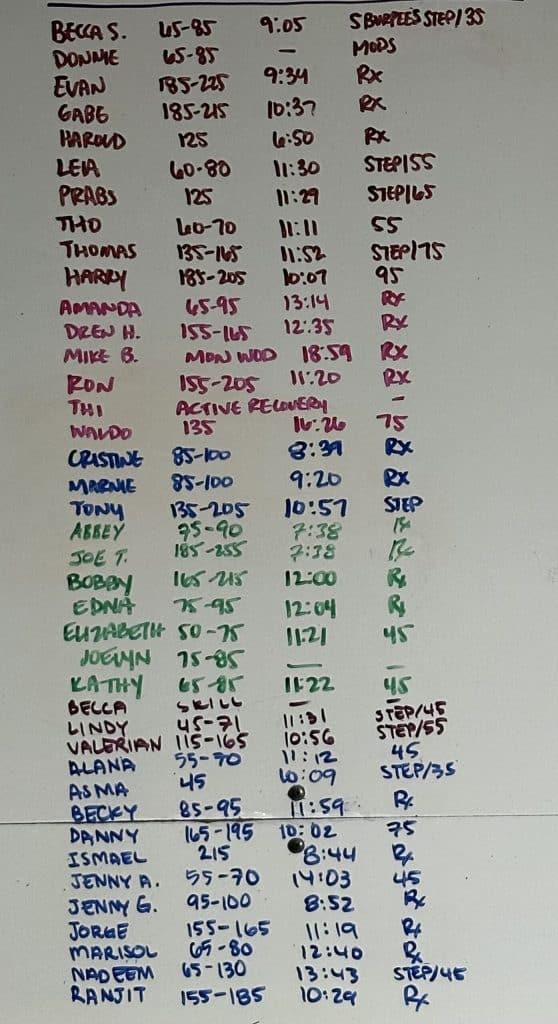 BECCA S. 65-85 9:05 5 BURPEES STEP/35
DONNIE 65-85 — MODS
EVAN 185-225 9:34 Rx
GABE 185-215 10:37 Rx
HAROLD 125 6:50 Rx
LEIA 60-80 11:30 STEP/55
PRABS 125 11:29 STEP/65
THO 60-70 11:11 55
THOMAS 135-165 11:52 STEP/75
HARRY 185-205 10:07 95
AMANDA 65-95 13:14 Rx
DREW H. 155-165 12:35 Rx
MIKE B. MON WOD 18:59 Rx
RON 155-205 11:20 RX
THI ACTIVE RECOVERY —
WALDO 135 16:26 75
CRISTINE 85-100 8:39 Rx
MARNIE 85-100 9:20 Rx
TONY 135-205 10:57 STEP
ABBEY 75-90 7:38 Rx
JOE T. 185-255 7:38 Rx
BOBBY 165-215 12:00 Rx
EDNA 75-95 12:04 Rx
ELIZABETH 50-75 11:21 45
JOELYN 75-85 — —
KATHY 65-85 11:22 45
BECCA SKILL —
LINDY 45-71 11:31 STEP/45
VALERIAN 115-165 10:56 STEP/55
ALANA 55-70 11:12 45
ASMA 45 10:09 STEP/35
BECKY 85-95 11:59 Rx
DANNY 165-195 10:02 75
ISMAEL 215 8:44 Rx
JENNY A. 55-70 14:03 45
JENNY G. 95-100 8:52 Rx
JORGE 155-165 11:19 Rx
MARISOL 65-80 12:40 Rx
NADEEM 65-130 13:43 STEP/45
RANJIT 155-185 10:29 Rx